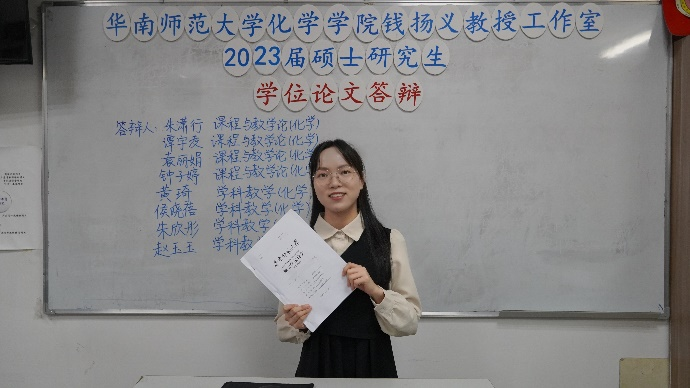 华南师范大学化学学院钱扬义教授工作室
2023届硕士研究生
学位论文答辩
答辩人：朱潇行 课程与教学论(化学)
谭宇凌 课程与教学论(化学)
袁丽娟 课程与教学论(化学)
钟子婷 课程与教学论(化学)
黄琦 学科教学(化学)
侯晓蓓 学科教学(化学)
朱欣彤 学科教学
赵玉玉 学科教